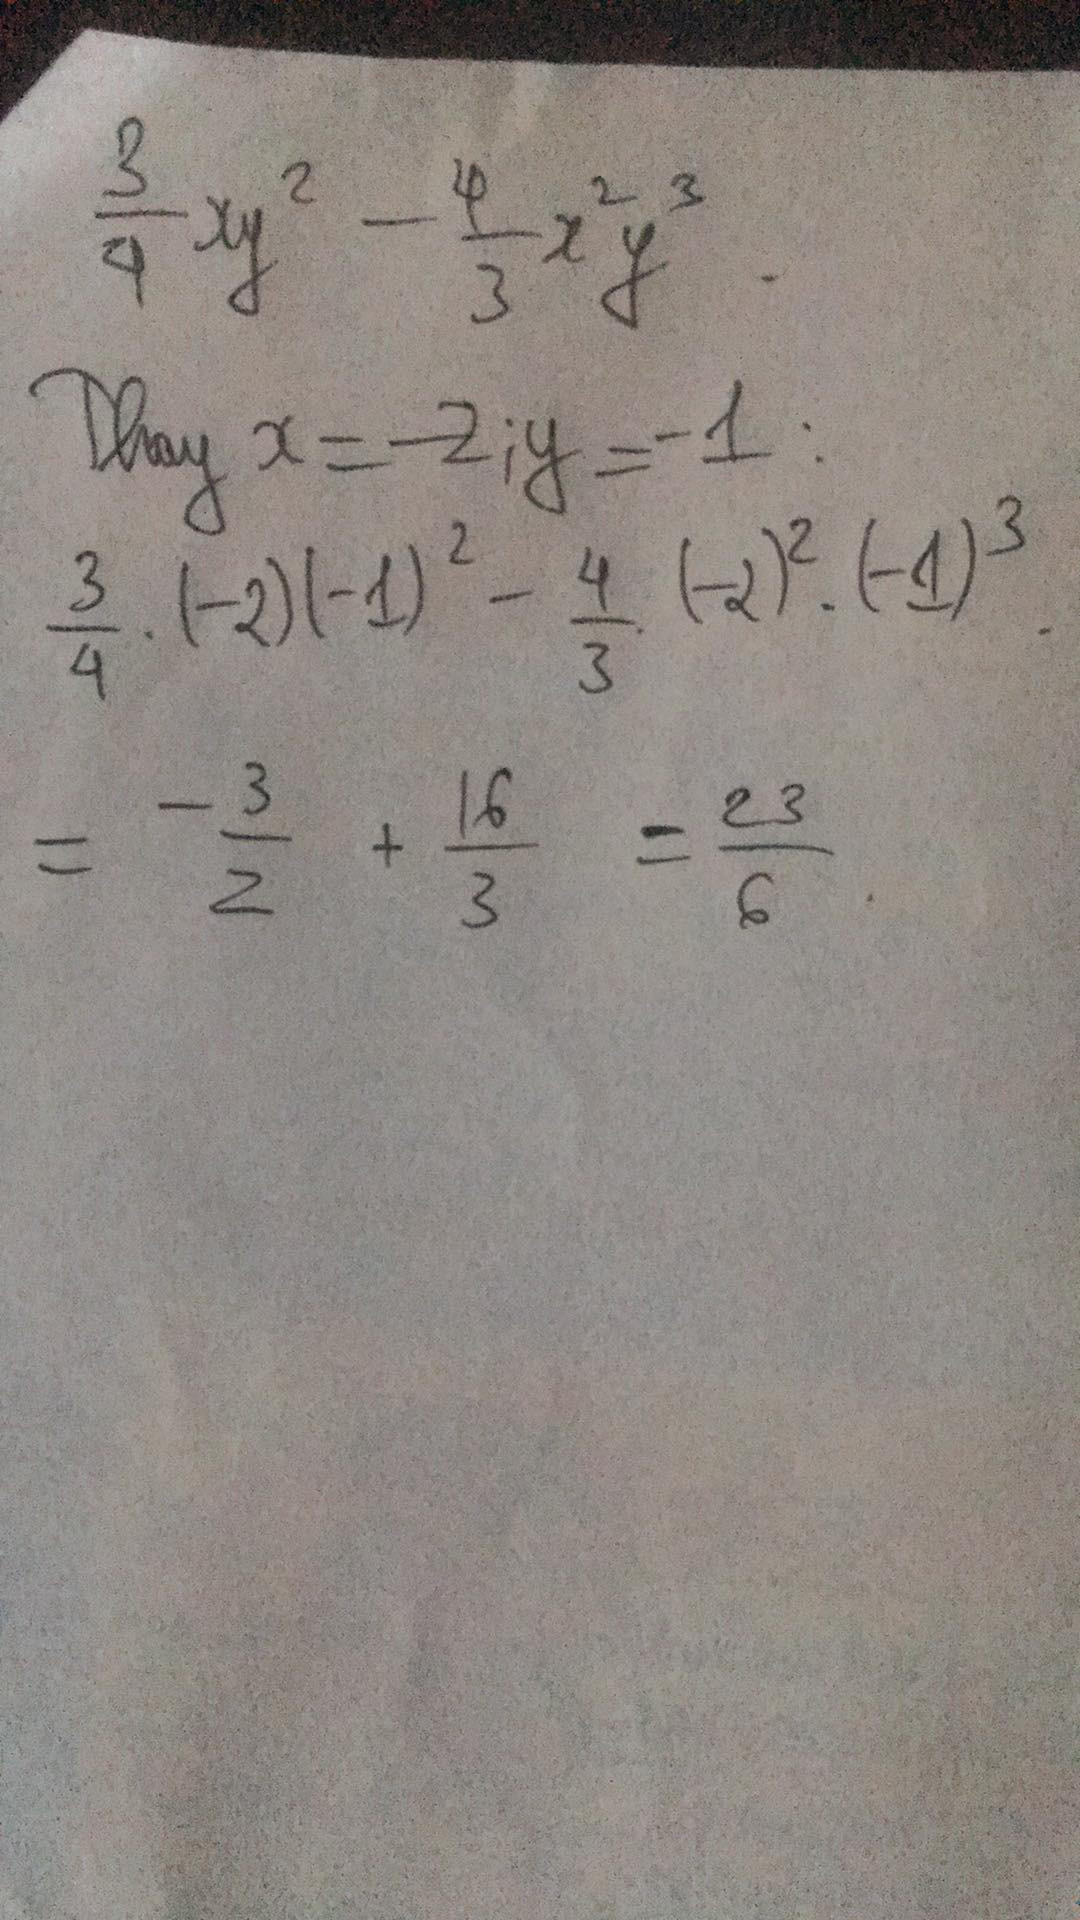 3/4 xy² - 4/3 x²y³.
Thay x = -2; y = -1 :
3/4 . (-2)(-1)² - 4/3 . (-2)² . (-1)³.
= -3/2 + 16/3 = 23/6.